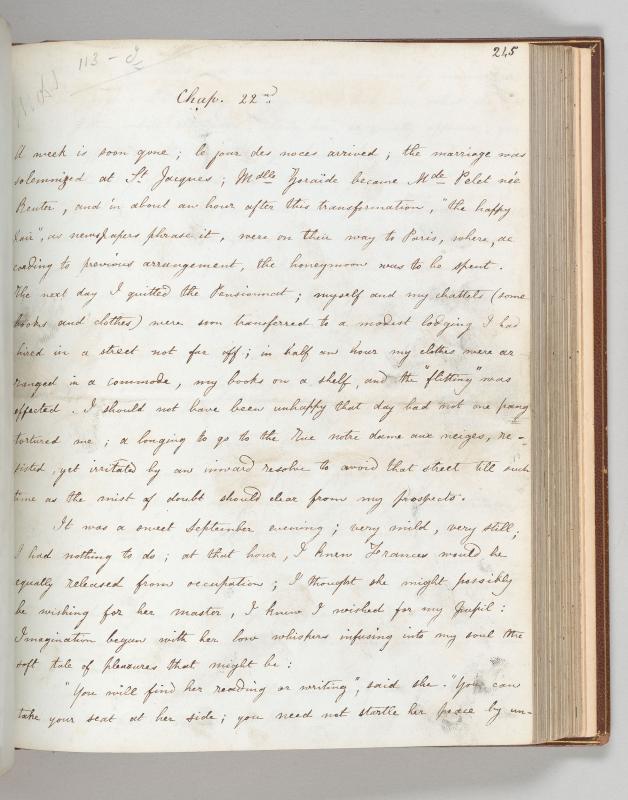 215
113 - J
Chap. 22nd
A week is soon gone; le jour des noces arrived; the marriage was
solemnized at St. Jacques; Mdlle Zoraïde became Mde Pelet née
Reuter, and in about an hour after this transformation, "the happy
pair", as newspapers phrase it, were on their way to Paris, where, ac
cording to previous arrangement, the honeymoon was to be spent.
The next day I quitted the Pensionnat; myself and my chattels (some
books and clothes) were soon transferred to a modest lodging I had
hired in a street not far off; in half an hour my clothes were ar
ranged in a commode, my books on a shelf, and the "flitting" was
effected. I should not have been unhappy that day had not one pang
tortured me; a longing to go to the Rue notre dame aux neiges, re-
sisted, yet irritated by an inward resolve to avoid that street till such
time as the mist of doubt should clear from my prospects.
It was a sweet September evening; very mild, very still;
I had nothing to do; at that hour, I knew Frances would be
equally released from occupation; I thought she might possibly
be wishing for her master, I knew I wished for my pupil:
Imagination began with her low whispers infusing into my soul the
soft tale of pleasures that might be:
"You will find her reading or writing", said she. "You can
take your seat at her side; you need not startle her peace by un-